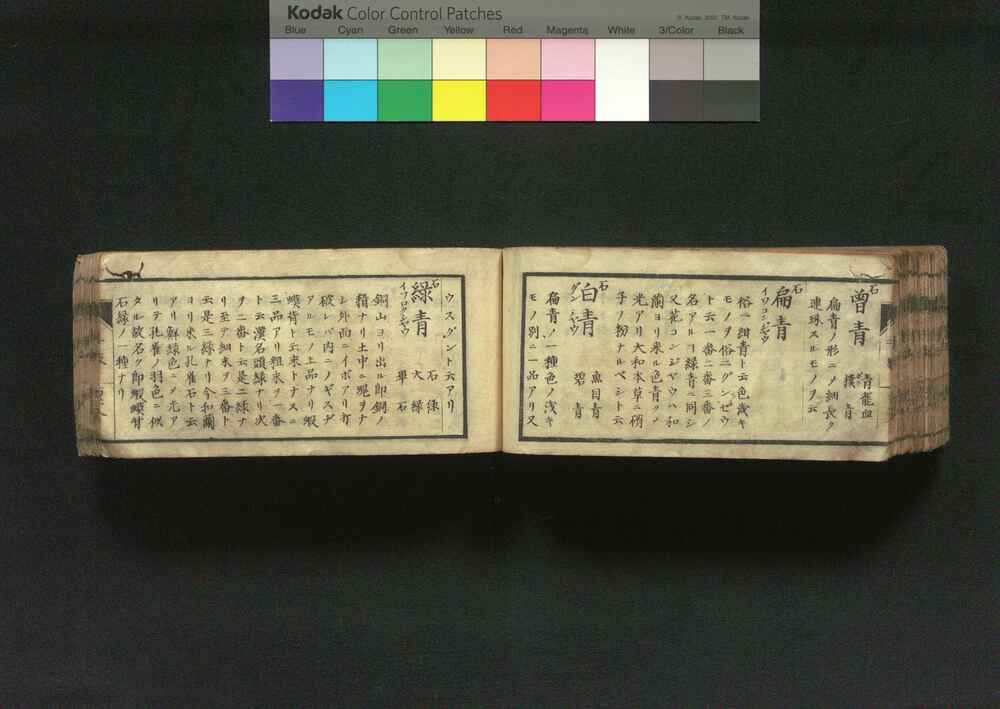 Kodak Color Control Patches
© Kodak, 2007 TM: Kodak
Blue Cyan Green Yellow Red Magenta White 3/Color Black
石
曽青 青龍血
樸青
扁青ノ形ニメ細長ク
連珠スルモノヲ云
石
扁青
イワコンジャウ
俗ニ紺青ト云色浅キ
モノヲ俗ニグンゼウ
ト云一番二番三番ノ
名アルヿ緑青ニ同シ
又花コンジヤウハ和
蘭ヨリ来ル色青クメ
光アリ大和本草ニ硝
子ノ粉ナルベシト云
石
白青 魚目青
碧青
グンジャウ
扁青ノ一種色ノ浅キ
モノ別ニ一品アリ又
ウスグント云アリ
石
緑青 石緑
大緑
畢石
イワロクシャウ
銅山ヨリ出ル即銅ノ
精ナリ土中ニ塊ヲナ
シ外面ニイボアリ打
破レバ内ニノギスヂ
アルモノ上品ナリ蝦
蟆背ト云来トナスニ
三品アリ粗末ヲ一番
ト云漢名頭緑ナリ次
ヲ二番ト云是二緑ナ
リ至テ細末ヲ三番ト
云是三緑ナリ今和蘭
ヨリ来ル孔雀石ト云
アリ鮮緑色ニメ光ア
リテ孔雀ノ羽色ニ似
タル故名ク即蝦蟆背
石緑ノ一種ナリ